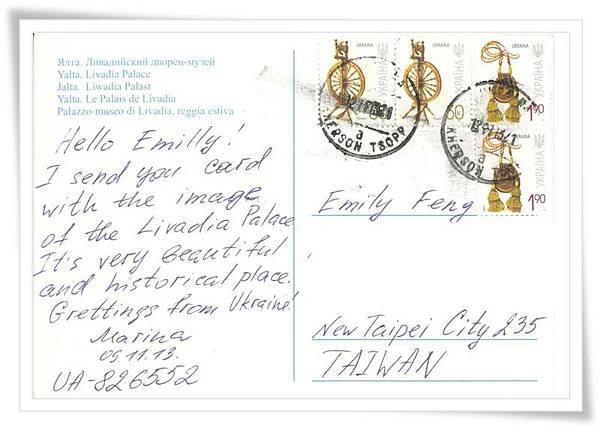 Ялта. Ливадийский дворец-музей
Yalta. Livadia Palace
Jalta. Liwadia Palast
Yalta. Le Palais de Livadia
Palazzo-museo di Livadia, reggia estiva
Hello Emilly!
I send you card
with the image
of the Livadia Palace
It's very beautiful
and historical place.
Grettings from Ukraine!
Marina
09.11.13.
UA-826552
UKRAINA
УКРАЇНА
1,90
УКРАЇНА
1,90
KHERSON TSOPP
Emily Feng
New Taipei City 235
TAIWAN